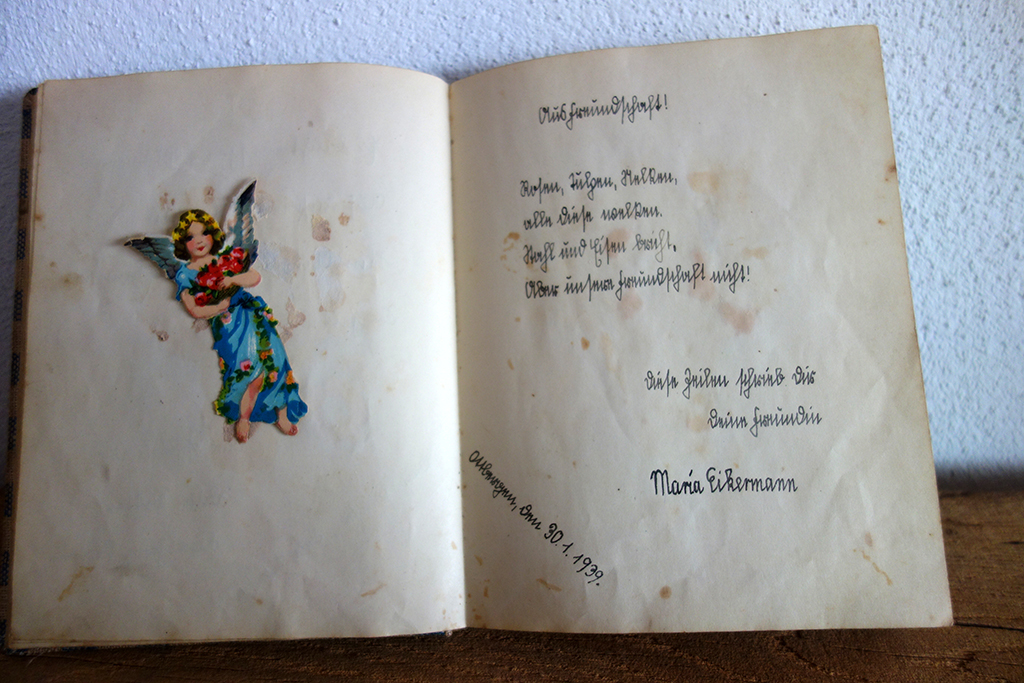 Aus Freundschaft!
Rosen, Tulpen, Nelken,
alle diese welken.
Stahl und Eisen bricht.
Aber unsere Freundschaft nicht!
Diese Zeilen schrieb Dir
Deine Freundin
Maria Eikermann
Ottbergen, den 30.1.1939.